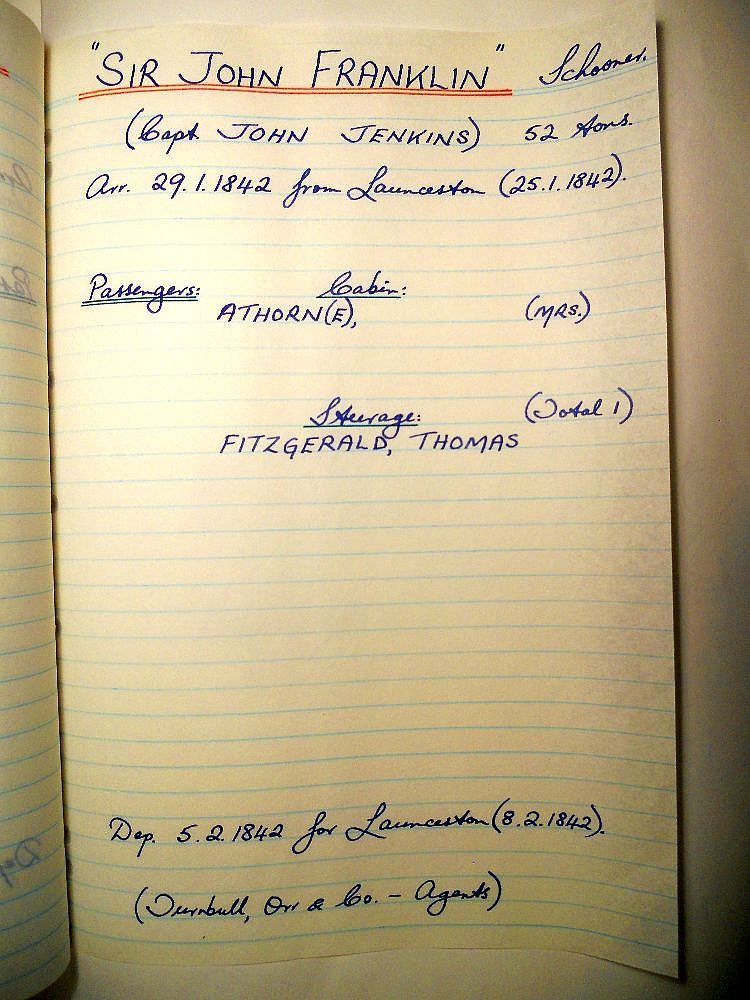 "SIR JOHN FRANKLIN" Schooner.
(Capt. JOHN JENKINS) 52 tons.
Arr. 29.1.1842 from Launceston (25.1.1842).
Passengers: Cabin:
ATHORN(E), (MRS.)
Steerage: (Total 1)
FITZGERALD, THOMAS
Dep. 5.2.1842 for Launceston (8.2.1842).
(Turnbull, Orr & Co. - Agents)